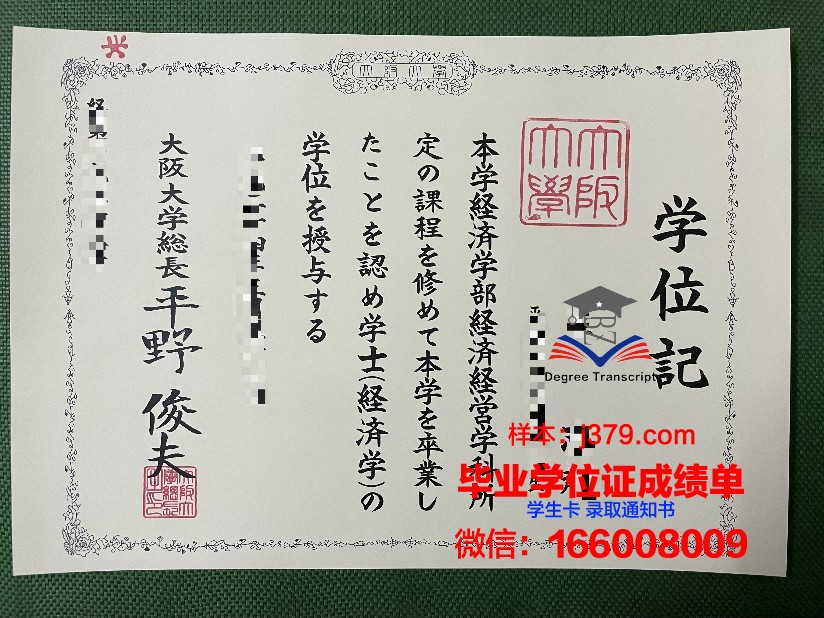 学位記
大阪
大學
本学経済学部経済経営学科所
定の課程を修めて本学を卒業し
たことを認め学士(経済学)の
学位を授与する
大阪大学総長 平野俊夫
Degree Transcript
样本:j379.com
毕业学位证成绩单
学生卡 录取通知书
微信:166008009